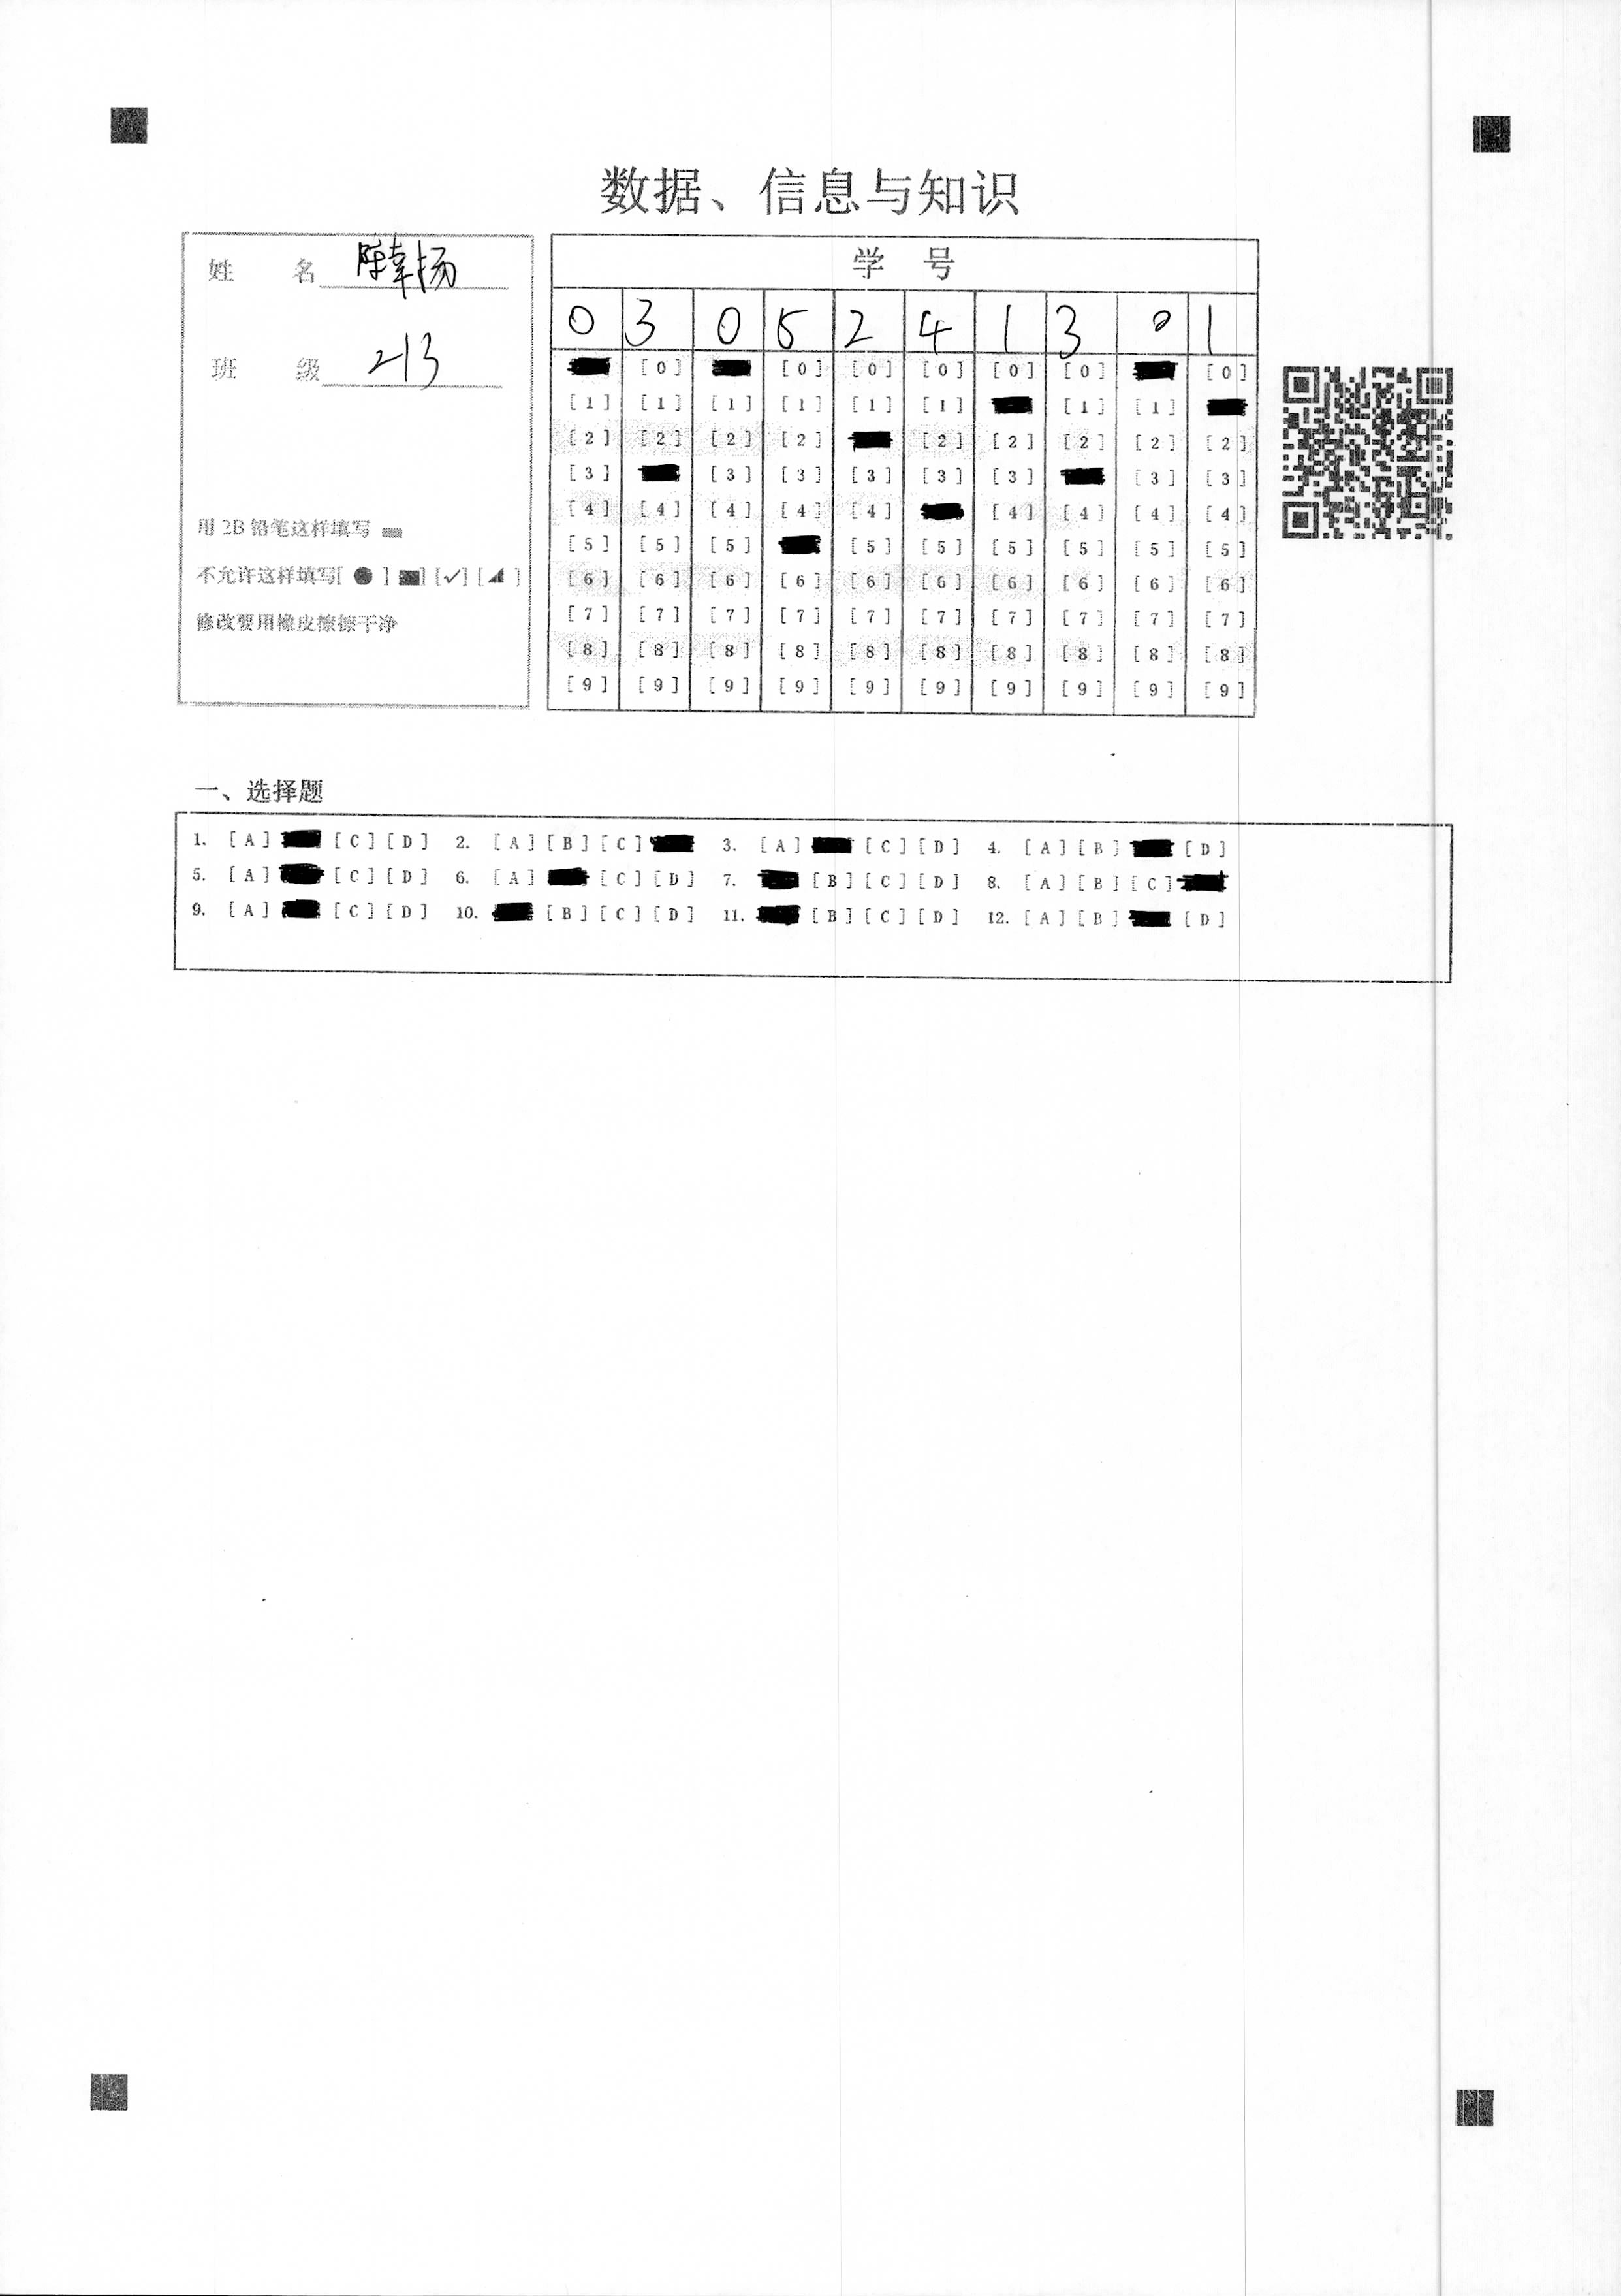 数据、信息与知识
姓 名 陈幸扬
班 级 213
用 2B 铅笔这样填写
不允许这样填写[ ● ] [■] [✓] [◢ ]
修改要用橡皮擦擦干净
学 号
0 3 0 5 2 4 1 3 0 1
[0] [0] [0] [0] [0] [0] [0]
[1] [1] [1] [1] [1] [1] [1] [1]
[2] [2] [2] [2] [2] [2] [2] [2] [2]
[3] [3] [3] [3] [3] [3] [3] [3]
[4] [4] [4] [4] [4] [4] [4] [4] [4]
[5] [5] [5] [5] [5] [5] [5] [5] [5]
[6] [6] [6] [6] [6] [6] [6] [6] [6] [6]
[7] [7] [7] [7] [7] [7] [7] [7] [7] [7]
[8] [8] [8] [8] [8] [8] [8] [8] [8] [8]
[9] [9] [9] [9] [9] [9] [9] [9] [9] [9]
一、选择题
1. [A] [C] [D] 2. [A] [B] [C] 3. [A] [C] [D] 4. [A] [B] [D]
5. [A] [C] [D] 6. [A] [C] [D] 7. [B] [C] [D] 8. [A] [B] [C]
9. [A] [C] [D] 10. [B] [C] [D] 11. [B] [C] [D] 12. [A] [B] [D]